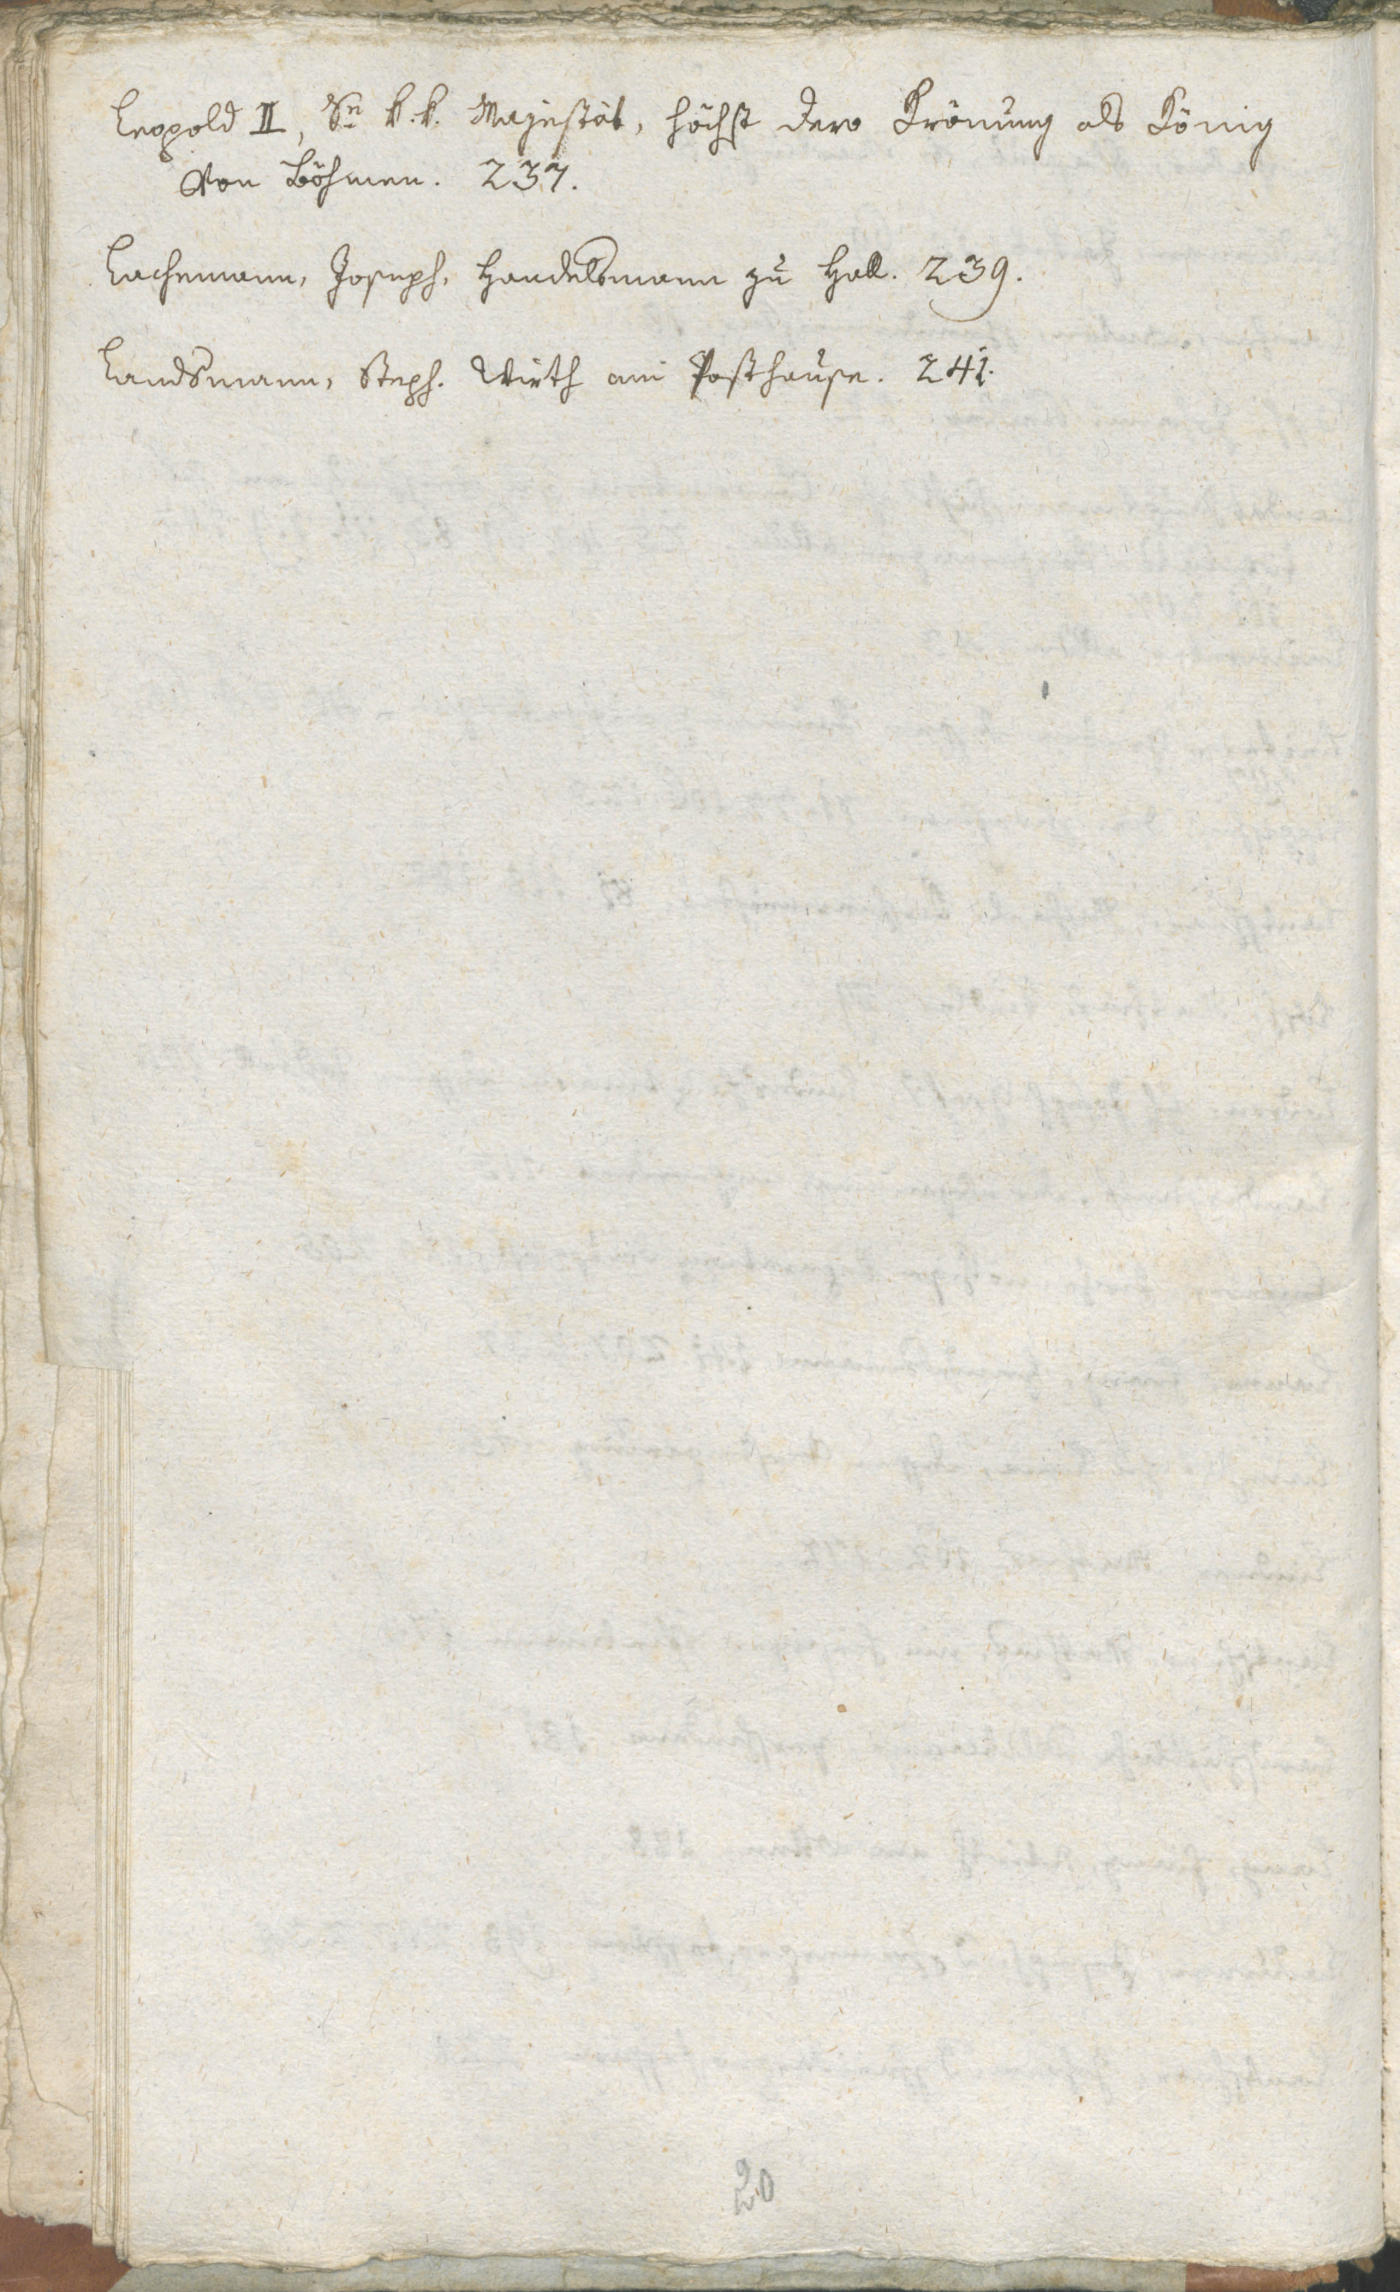 Leopold II, Sr k. k. Majestät, höchst dero Krönung als König
von Böhmen. 237.
Lachemann, Joseph, Handelsmann zu Hall. 239.
Landsmann, Steph. Wirth am Posthause. 241.
20